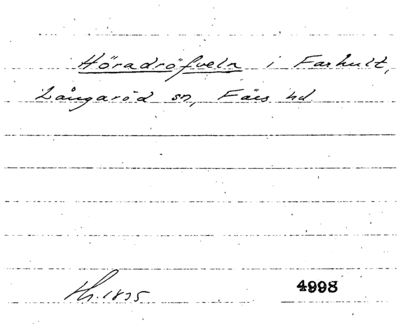 Höradröfveln i Farhult,
Långaröd sn, Färs hd
Hh. 1875
4998